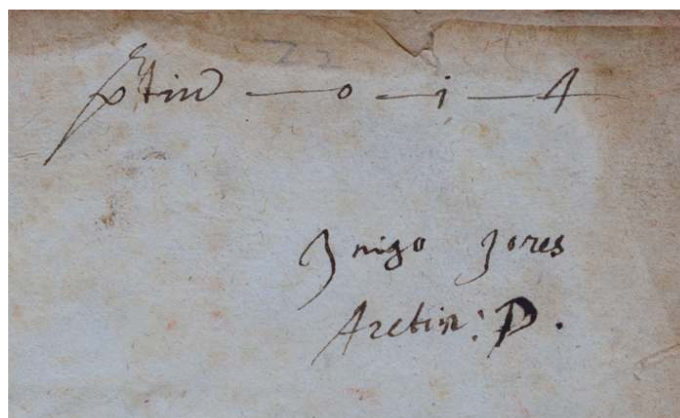 ptiu — o — i — 4
Inigo Jones
Aretin: P.